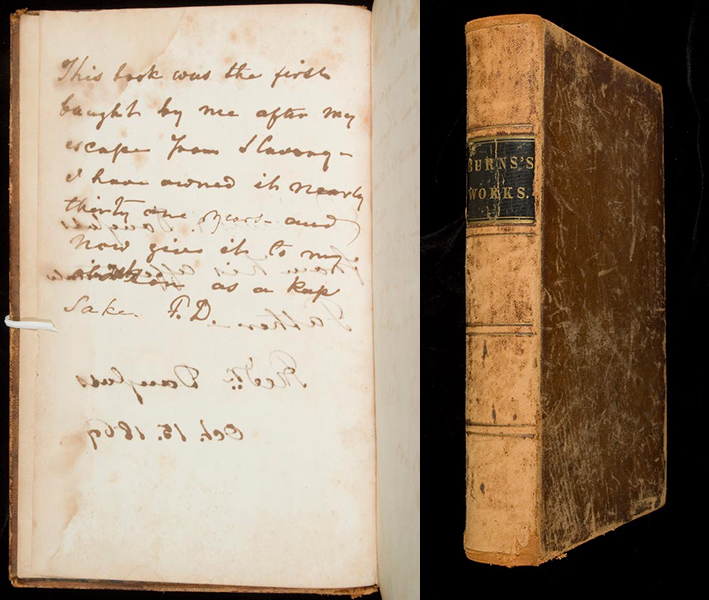 This book was the first
bought by me after my
escape from Slavery -
I have owned it nearly
thirty one years - and
now give it to my
as a Keep
Sake. F.D
Father
Fredk. Douglass
Oct. 15. 1869
BURNS'S
WORKS.